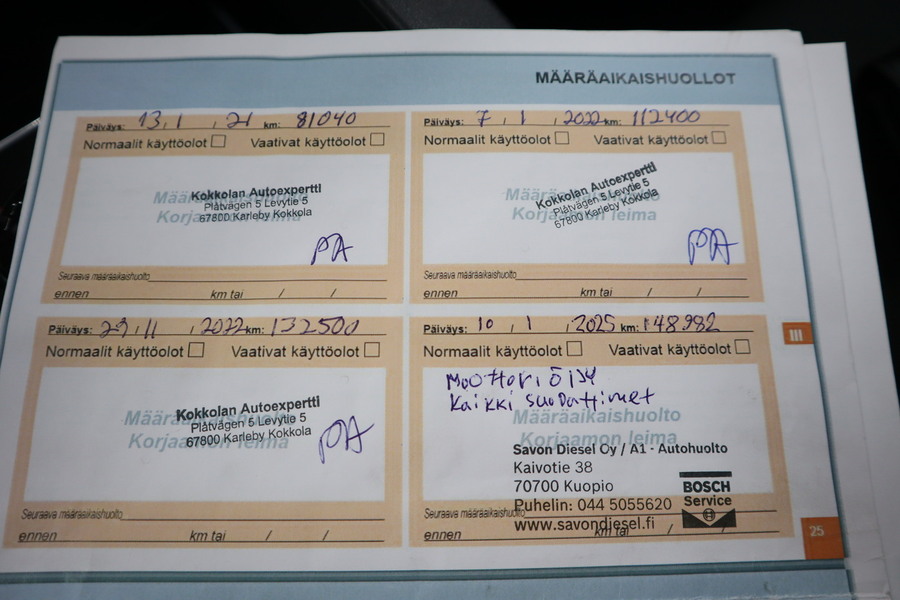 MÄÄRÄAIKAISHUOLLOT
Päiväys: 13, 1 , 21 km: 81040
Normaalit käyttöolot Vaativat käyttöolot
Määräaikaishuolto
Korjaamon leima
Kokkolan Autoexpertti
Plåtvägen 5 Levytie 5
67800 Karleby Kokkola
PA
Seuraava määräaikaishuolto
ennen km tai / /
Päiväys: 7 , 1 , 2022 km: 112400
Normaalit käyttöolot Vaativat käyttöolot
Määräaikaishuolto
Korjaamon leima
Kokkolan Autoexpertti
Plåtvägen 5 Levytie 5
67800 Karleby Kokkola
PA
Seuraava määräaikaishuolto
ennen km tai / /
Päiväys: 29, 11 , 2022 km: 132500
Normaalit käyttöolot Vaativat käyttöolot
Määräaikaishuolto
Korjaamon leima
Kokkolan Autoexpertti
Plåtvägen 5 Levytie 5
67800 Karleby Kokkola
PA
Seuraava määräaikaishuolto
ennen km tai / /
Päiväys: 10 , 1 , 2025 km: 148982
Normaalit käyttöolot Vaativat käyttöolot
Moottoriöljy
kaikki suodattimet
Määräaikaishuolto
Korjaamon leima
Savon Diesel Oy / A1 - Autohuolto
Kaivotie 38
70700 Kuopio
Puhelin: 044 5055620
www.savondiesel.fi
BOSCH
Service
Seuraava määräaikaishuolto
ennen km tai / /
III
25